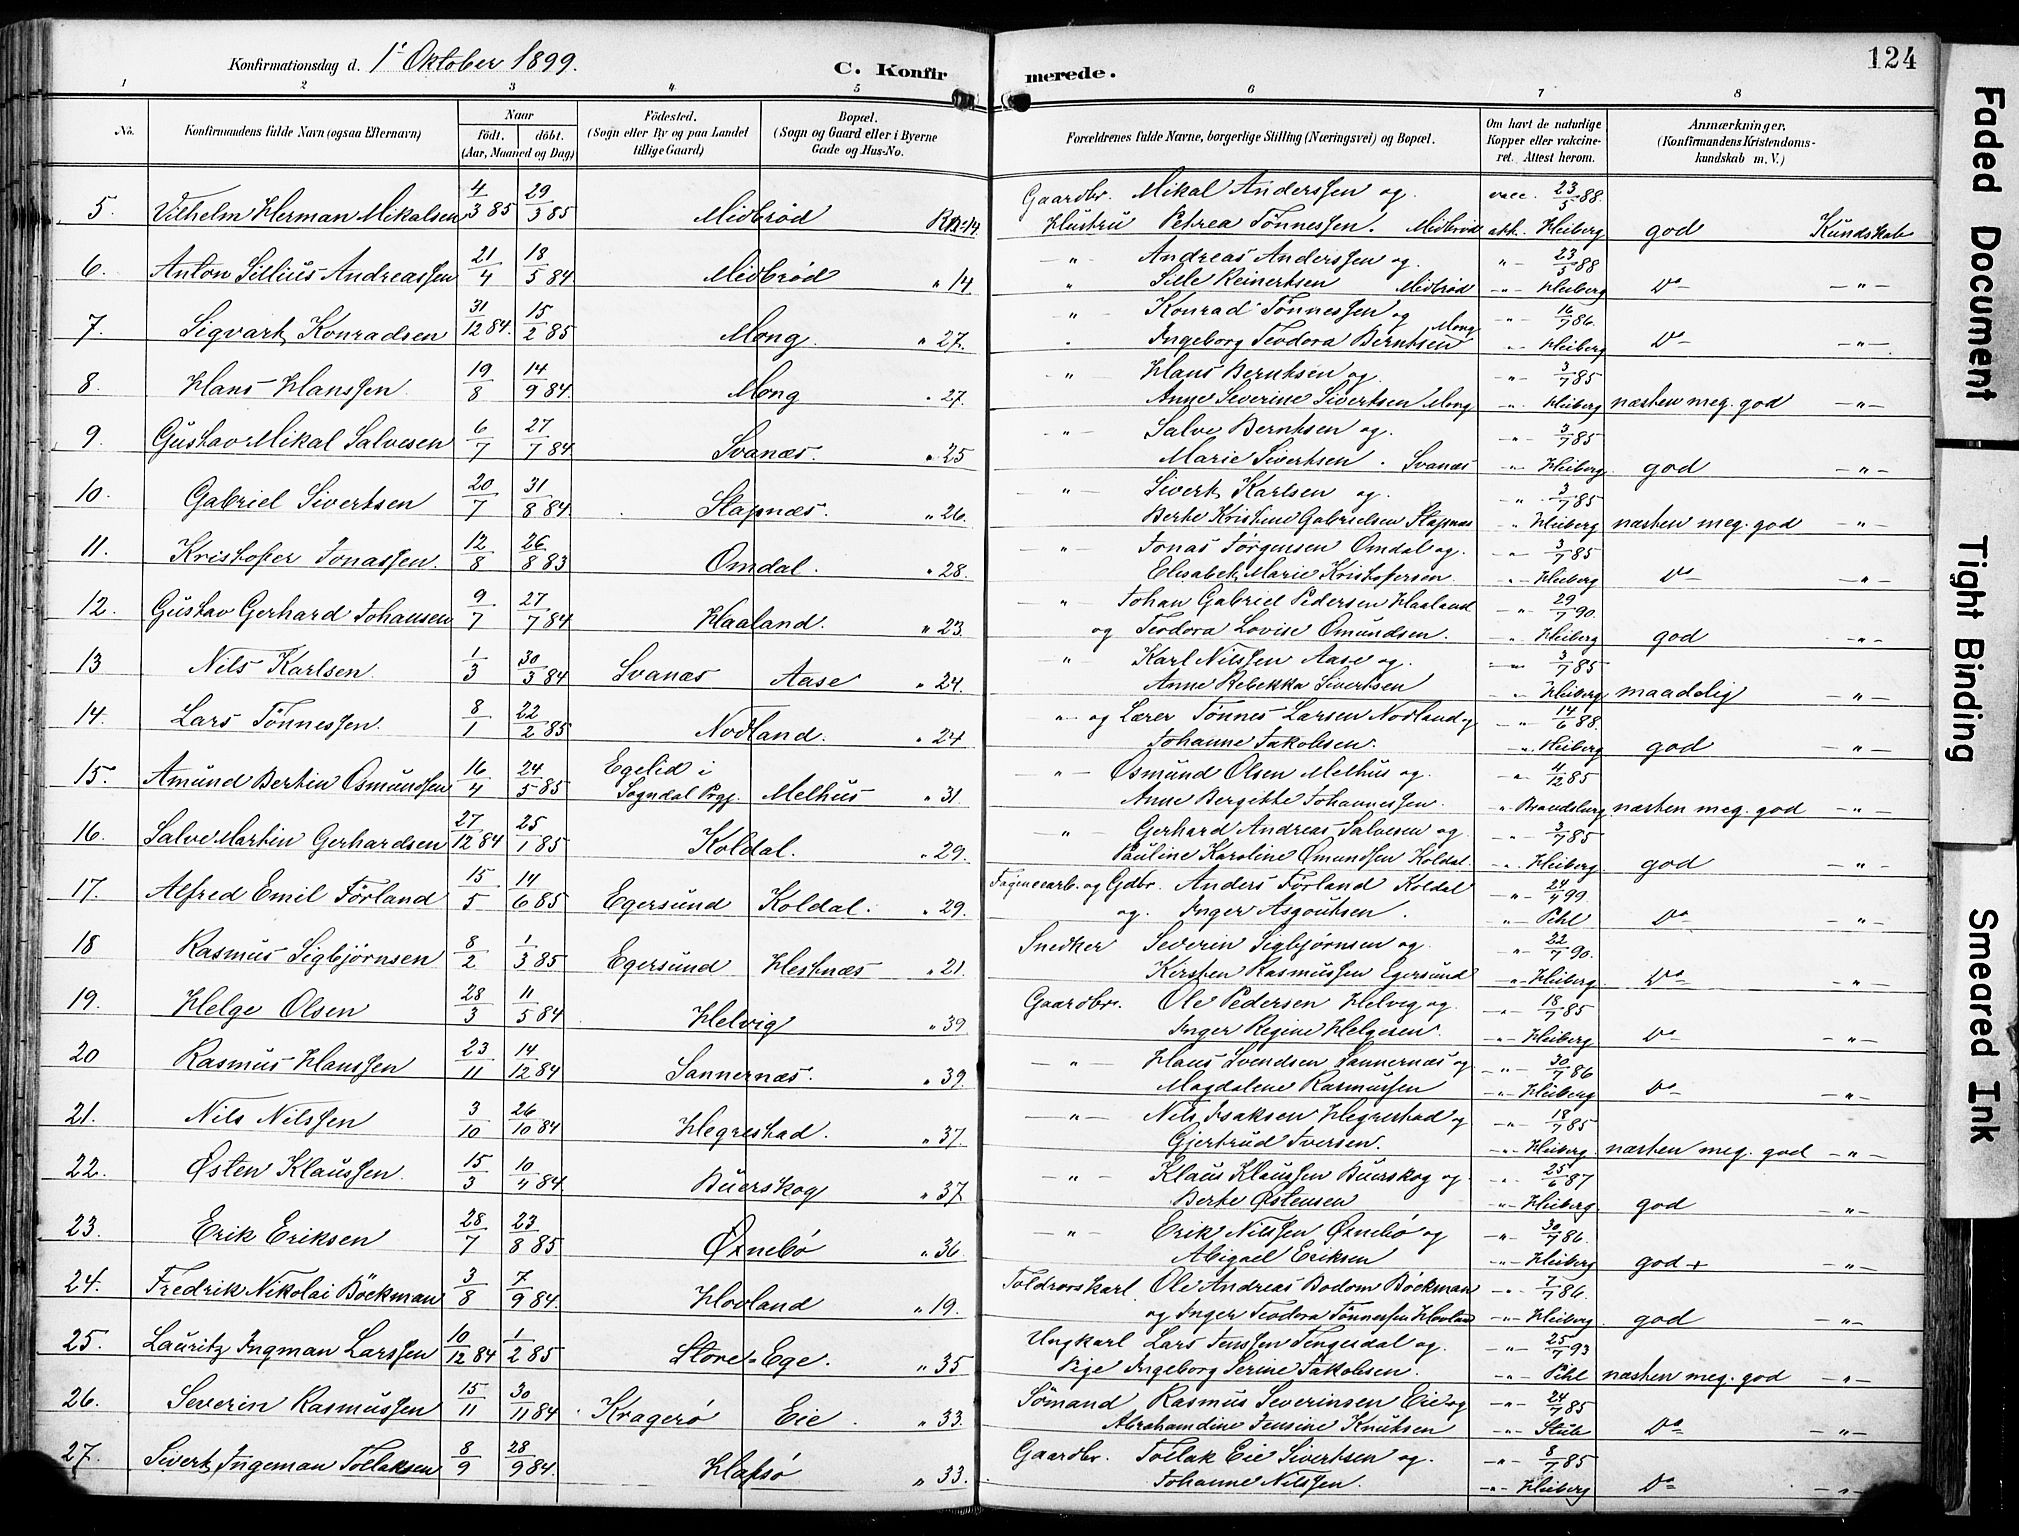 Konfirmationsdag d. 1' Oktober 1899. C. Konfirmerede. 124
1 2 3 4 5 6 7 8
No. Konfirmandens fulde Navn (ogsaa Efternavn) Naar født. døbt. (Aar, Maaned og Dag) Fødested. (Sogn eller By og paa Landet tillige Gaard) Bopæl. (Sogn og Gaard eller i Byerne Gade og Hus-No. Forældrenes fulde Navne, borgerlige Stilling (Næringsvei) og Bopæl. Om havt de naturlige Kopper eller vakcineret. Attest herom. Anmærkninger. (Konfirmandens Kristendomskundskab m. V.)
5. Vilhelm Herman Mikalsen 4/3 85 29/3 85 Midbrød 14 Gaardbr. Mikal Anderssen og vacc. 23/5 88
Hustru Petrea Tønnessen. Midbrød att. Heiberg god Kundskab
6. Anton Sillius Andreassen 21/4 18/5 84 Midbrød " 14 " Andreas Anderssen og " 23/5 88
" Sille Reinertsen Midbrød " Heiberg Do "
7. Sigvart Konradsen 31/12 84. 15/2 85 Mong. " 27. " Konrad Tønnessen og Mong " 16/7 86.
Ingeborg Teodora Berntsen " Heiberg Do "
8. Hans Hanssen 19/8 14/9 84 Mong " 27. " Hans Berntsen og " 3/7 85
Anne Severine Sivertsen Mong " Heiberg næsten meg. god "
9. Gustav Mikal Salvesen 6/7 27/7 84 Svanæs. " 25 " Salve Berntsen og. " 3/7 85
Marie Sivertsen. Svanæs " Heiberg. god "
10. Gabriel Sivertsen 20/7 31/8 84 Stapnæs. " 26. " Sivert Karlsen og. " 3/7 85
Berte Kristine Gabrielsen Stapnæs " Heiberg næsten meg. god "
11. Kristofer Jonassen. 12/8 26/8 83 Omdal. " 28. " Jonas Jørgensen Omdal og. " 3/7 85
Elisabet Marie Kristofersen " Heiberg Do "
12. Gustav Gerhard Johansen 9/7 27/7 84 Haaland. " 23. " Johan Gabriel Pedersen Haaland " 29/7 90
og Teodora Lovise Omundsen. " Heiberg god "
13 Nils Karlsen 1/3 30/3 84 Svanæs Aase " 24. " Karl Nilssen Aase og. " 3/7 85
Anne Rebekka Sivertsen " Heiberg maadelig "
14. Lars Tønnessen. 8/1 22/2 85 Nodland. " 24 " og Lærer Tønnes Larsen Nodland og " 14/6 88
Johanne Jakobsen. " Heiberg god "
15. Amund Bertin Osmundsen 16/4 24/5 85 Egelid i Sogndal Prgj. Melhus " 31. " Osmund Olsen Melhus og " 4/12 85
Anne Bergitte Johannessen. " næsten meg. god "
16. Salve Martin Gerhardsen 27/12 84 25/1 85 Koldal. " 29. " Gerhard Andreas Salvesen og " 3/7 85
Pauline Karoline Omundsen Koldal. " Heiberg god "
17. Alfred Emil Førland 15/5 14/6 85 Egersund Koldal. " 29. og Gdbr. Anders Førland Koldal " 24/4 99.
og. Inger Asgoutsen. " Pihl Do "
18 Rasmus Sigbjørnsen 8/2 1/3 85 Egersund Hestnæs " 21. Snedker Severin Sigbjørnsen og. " 22/7 90.
Kirsten Rasmussen Egersund " Heiberg Do "
19. Helge Olsen 28/3 11/5 84 Helvig " 39 Gaardbr. Ole Pedersen Helvig og. " 18/7 85
Inger Regine Helgesen. " Heiberg Do "
20 Rasmus Hanssen 23/11 14/12 84 Sannernæs. " 39. " Hans Svendsen Sannernæs og " 30/7 86
Magdalene Rasmussen " Heiberg Do "
21. Nils Nilssen 3/10 26/10 84 Hegrestad. " 37 " Nils Isaksen Hegrestad og " 18/7 85
Gjertrud Iversen. " Heiberg næsten meg. god "
22. Østen Klaussen. 15/3 10/4 84 Buerskog " 37 " Klaus Klaussen Buerskog og. " 25/6 87
Berte Østensen " Heiberg god "
23. Erik Eriksen 28/7 23/8 85 Ørnebø " 36. " Erik Nilssen Ørnebø og " 30/7 86.
Abigael Eriksen " Heiberg god + "
24. Fredrik Nikolai Böckman 3/8 7/9 84 Hovland " 19. Toldrorskarl Ole Andreas Bodom Böckman " 7/7 86.
og Inger Teodora Tønnessen Hovland " Heiberg god "
25. Lauritz Ingman Larssen 10/12 84 1/2 85 Store-Ege. " 35 Ungkarl Lars Jenssen Tengesdal og. " 25/7 93
Pige Ingeborg Serine Jakobsen. " Pihl næsten meg. god "
26. Severin Rasmussen 15/11 30/11 84 Kragerø Eie " 33. Sømand Rasmus Severinsen Eie og " 24/7 85
Abrahamdine Jensine Knutsen " Stub Do "
27. Sivert Ingeman Tollaksen 8/9 28/9 84. Hafsø " 33. Gaardbr. Tollak Eie Sivertsen og. " 8/7 85
Johanne Nilssen. " Heiberg Do "
Faded Document
Tight Binding
Smeared Ink